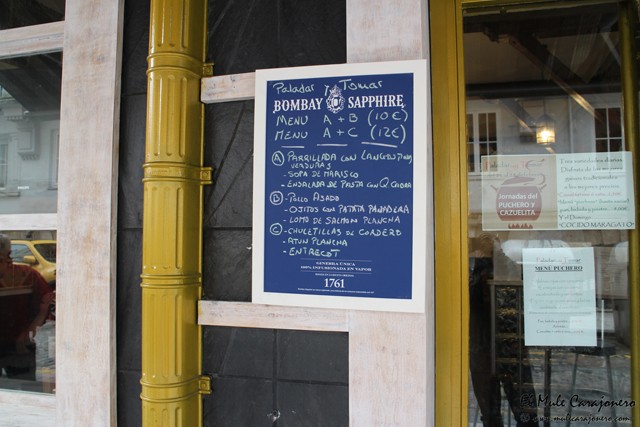 Paladar y Tomar
BOMBAY SAPPHIRE
MENU A + B (10€)
MENU A + C (12€)
A - PARRILLADA CON LANGOSTINOS
VERDURAS
- SOPA DE MARISCO
- ENSALADA DE PASTA CON Q. CABRA
B - POLLO ASADO
- OJITOS CON PATATA PANADERA
- LOMO DE SALMON PLANCHA
C - CHULETILLAS DE CORDERO
- ATUN PLANCHA
- ENTRECOT
GINEBRA ÚNICA
100% INFUSIONADA EN VAPOR
1761
Jornadas del
PUCHERO Y
CAZUELITA
COCIDO MARAGATO
MENÚ PUCHERO
El Mule Carajonero
© www.mulecarajonero.com